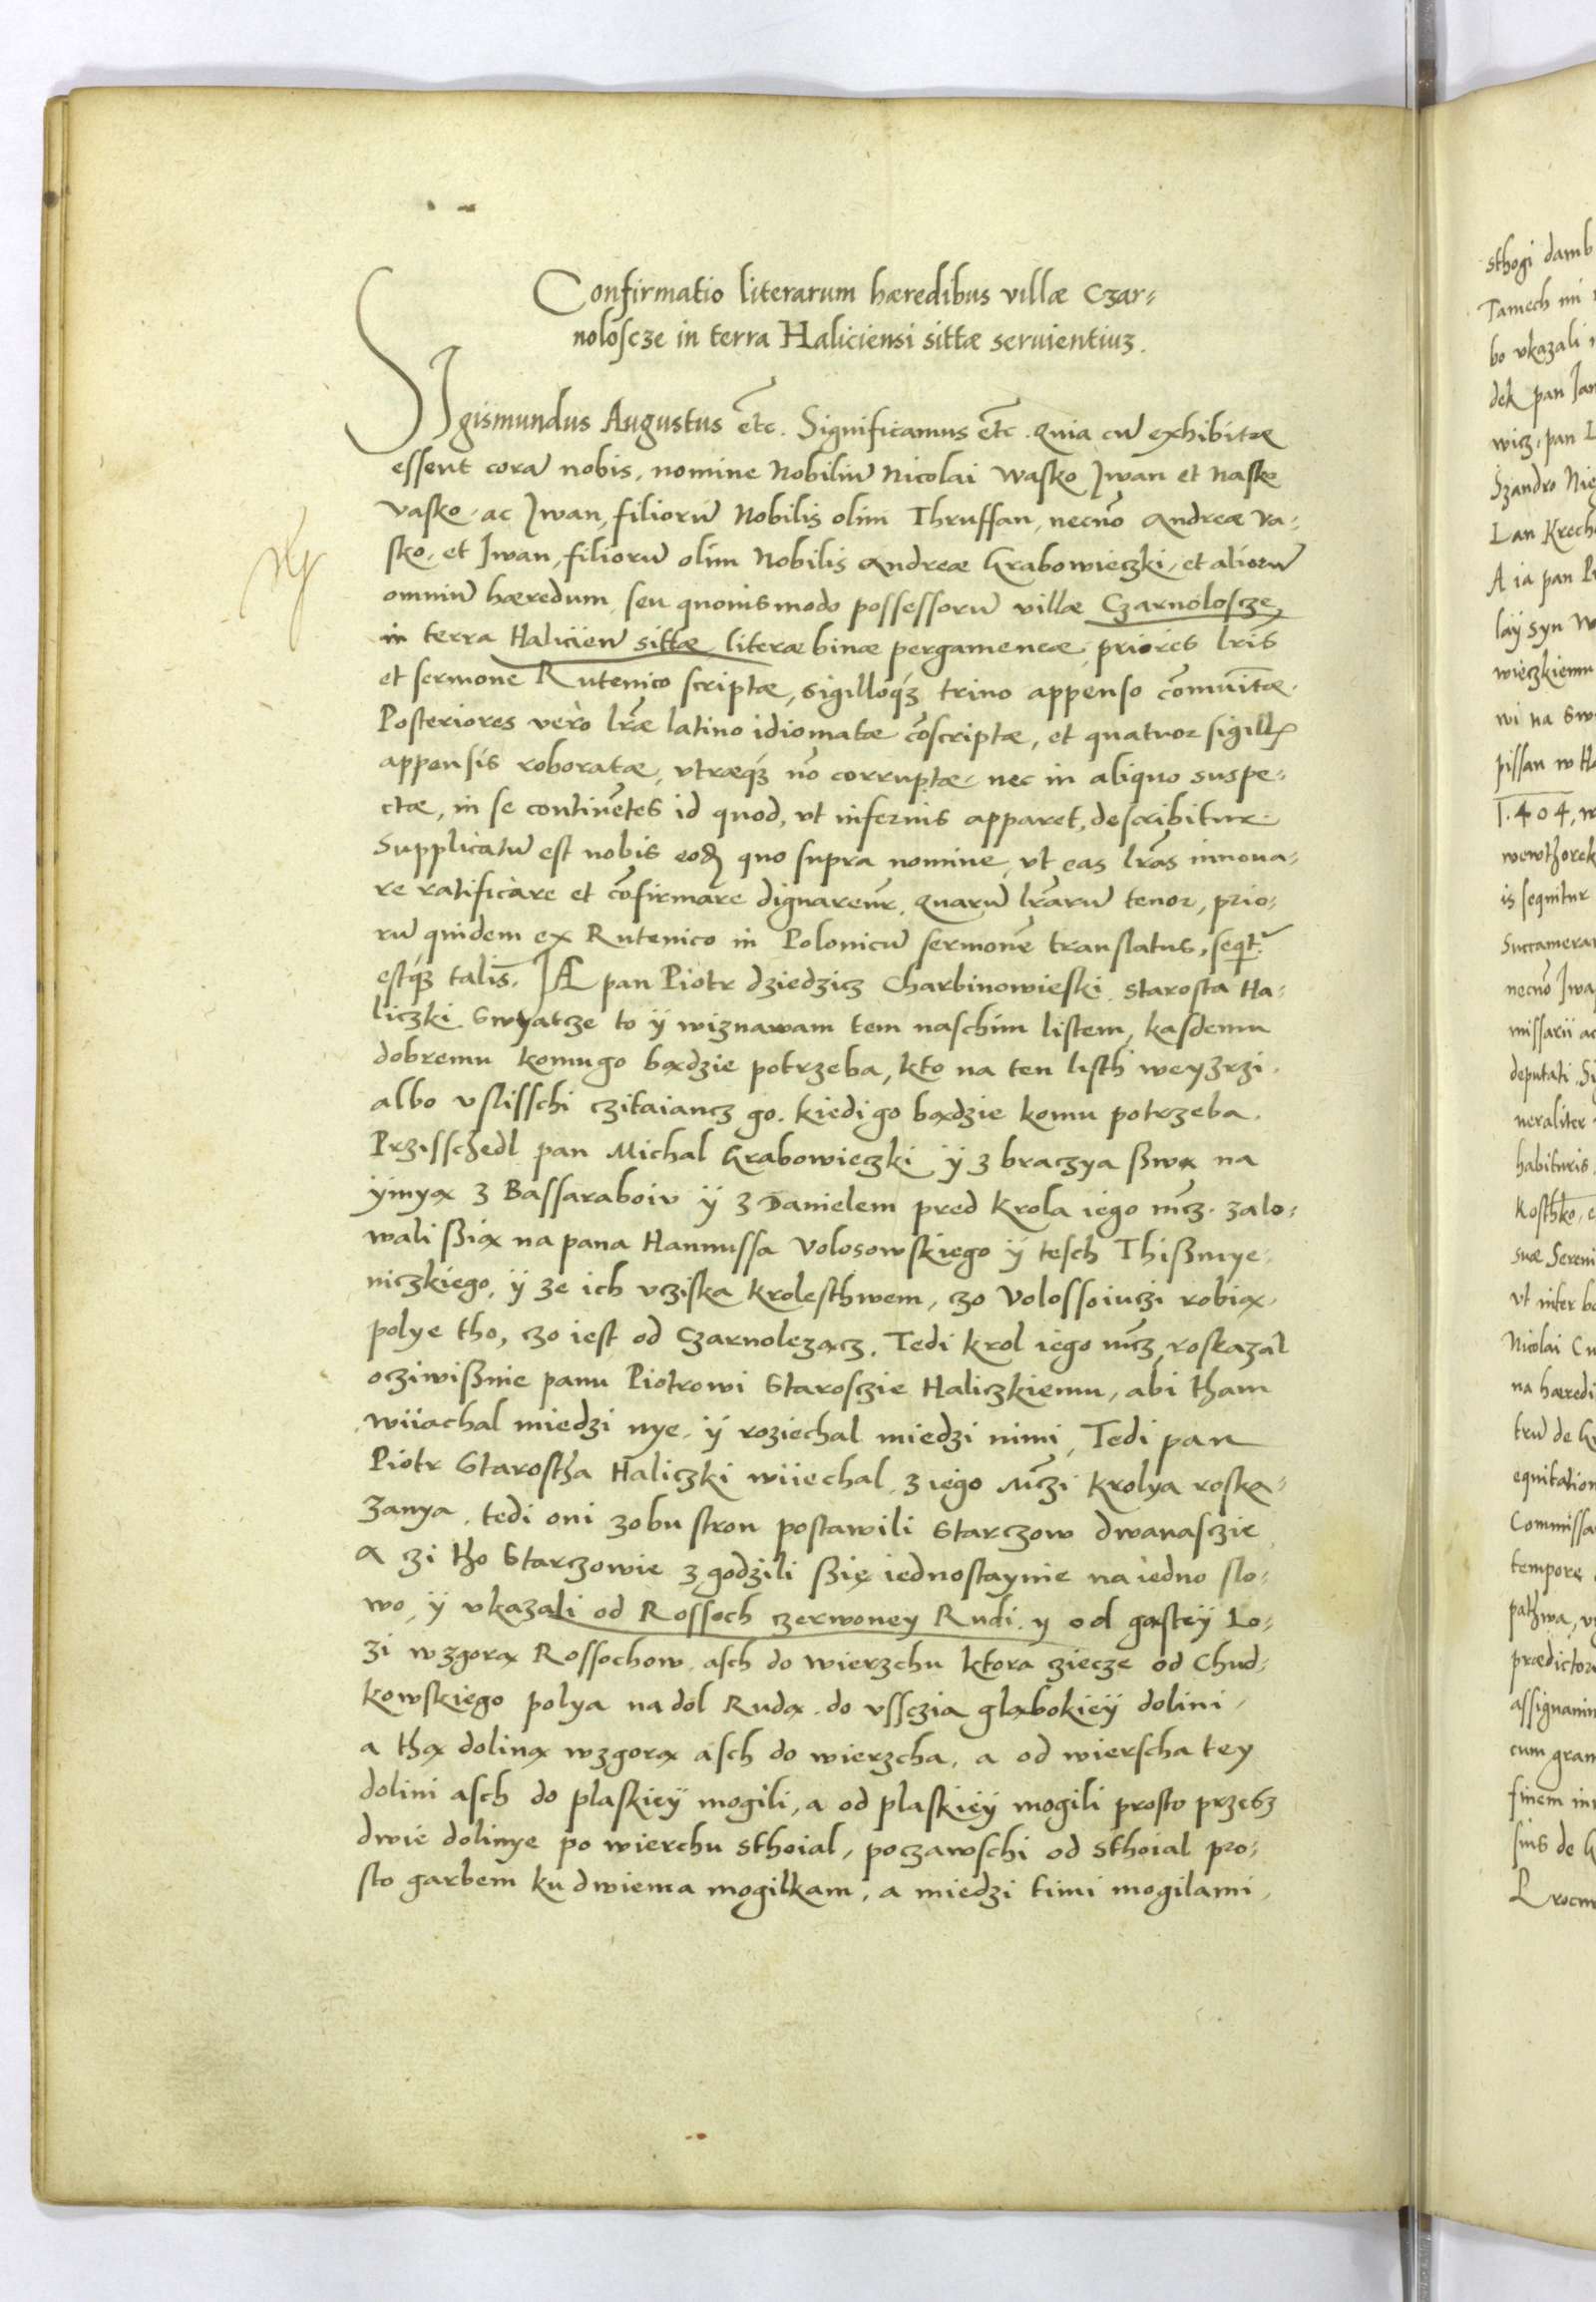 Confirmatio literarum hæredibus villæ Czar-
noloscze in terra Haliciensi sittæ seruientiuʒ.
SIgismundus Augustus etc. Significamus etc. Quia cū exhibitæ
essent corā nobis, nomine Nobiliū Nicolai Wasko Jwan et Nasko
Vasko, ac Jwan, filiorū Nobilis olim Thruffan, necnō Andreæ Va-
sko, et Jwan, filiorū olim Nobilis Andreæ Grabowieczki, et aliorū
omniū hæredum seu quouismodo possessorū villæ Czarnoloscze,
in terra Halicieñ sittæ, literæ binæ pergameneæ, priores lr̃is
et sermone Rutenico scriptæ, sigilloqʒ trino appenso cōmunitæ.
Posteriores vero lr̃æ latino idiomatæ cōscriptæ, et quatuor sigill
appensis roboratæ, vtræqʒ nō corruptæ, nec in aliquo suspe-
ctæ, in se continētes id quod, vt inferius apparet, describitur.
Supplicatū est nobis eod quo supra nomine, vt eas lr̃as innoua-
re ratificare et cōfirmare dignaremr. Quarū lr̃arū tenor, prio-
rū quidem ex Rutenico in Polonicū sermonē translatus, seqt̃
estqʒ talis. JA pan Piotr dziedzicz Charbinowieski starosta Ha-
liczki Swyatcze to ÿ wiznawam tem naschim listem, kasdemu
dobremu komugo bądzie potrzeba, kto na ten listh weyzrzi.
albo vslisschi czitaiancz go. kiedi go bądzie komu potrzeba.
Przisschedl pan Michal Grabowieczki ÿ z braczya ßwą na
ÿmyą z Bassaraboiv ÿ z Danielem pred Krola iego mcz. zalo-
wali ßią na pana Hannussa Volosowskiego ÿ tesch Thißmye-
niczkiego, ÿ ze ich vcziska krolesthwem, czo Volossoiuczi robią.
polye tho, czo iest od Czarnolezącz. Tedi krol iego mcz, roskazal
oziwißnie panu Piotrowi Starosczie Haliczkiemu, abi tham
wiiachal miedzi nye, ÿ roziechal miedzi nimi, Tedi pan
Piotr Starostha Haliczki wiiechal, z iego Mczi krolya roska-
zanya, tedi oni zobu stron postawili Starczow dwanasczie
a czi tho Starczowie z godzili ßię iednostaynie na iedno slo-
wo, ÿ vkazali od Rossoch czerwoney Rudi. y od gąstÿ Lo-
zi wzgorą Rossochow, asch do wierzchu ktora ziecze od Chud-
kowskiego polya na dol Rudą, do vssczia gląbokieÿ dolini,
a thą doliną wzgorą asch do wierzcha, a od wierscha tey
dolini asch do plaskieÿ mogili, a od plaskieÿ mogili prosto przesz
dwie dolinye po wierchu sthoial, poczawschi od sthoial pro-
sto garbem ku dwiema mogilkam, a miedzi timi mogilami,
sthogi damb
Tamech mi
bo vkazali
dek pan Jan
wicz, pan
Szandro Nie
Lan Krech
A ia pan P
laÿ syn W
wieczkiemu
wi na sw
pissan w H
1.404, w
wewthorek
is sequitur
Succamera
necnō Jwa
missarii ac
deputati. Si
neraliter
habituris
Kosthko, e
suæ Sereni
vt inter
Nicolai
na hæredi
trū de
equitation
Commissa
tempore
pathwa, v
prædictor
assignanim
cum gran
finem in
suis de
Krocw